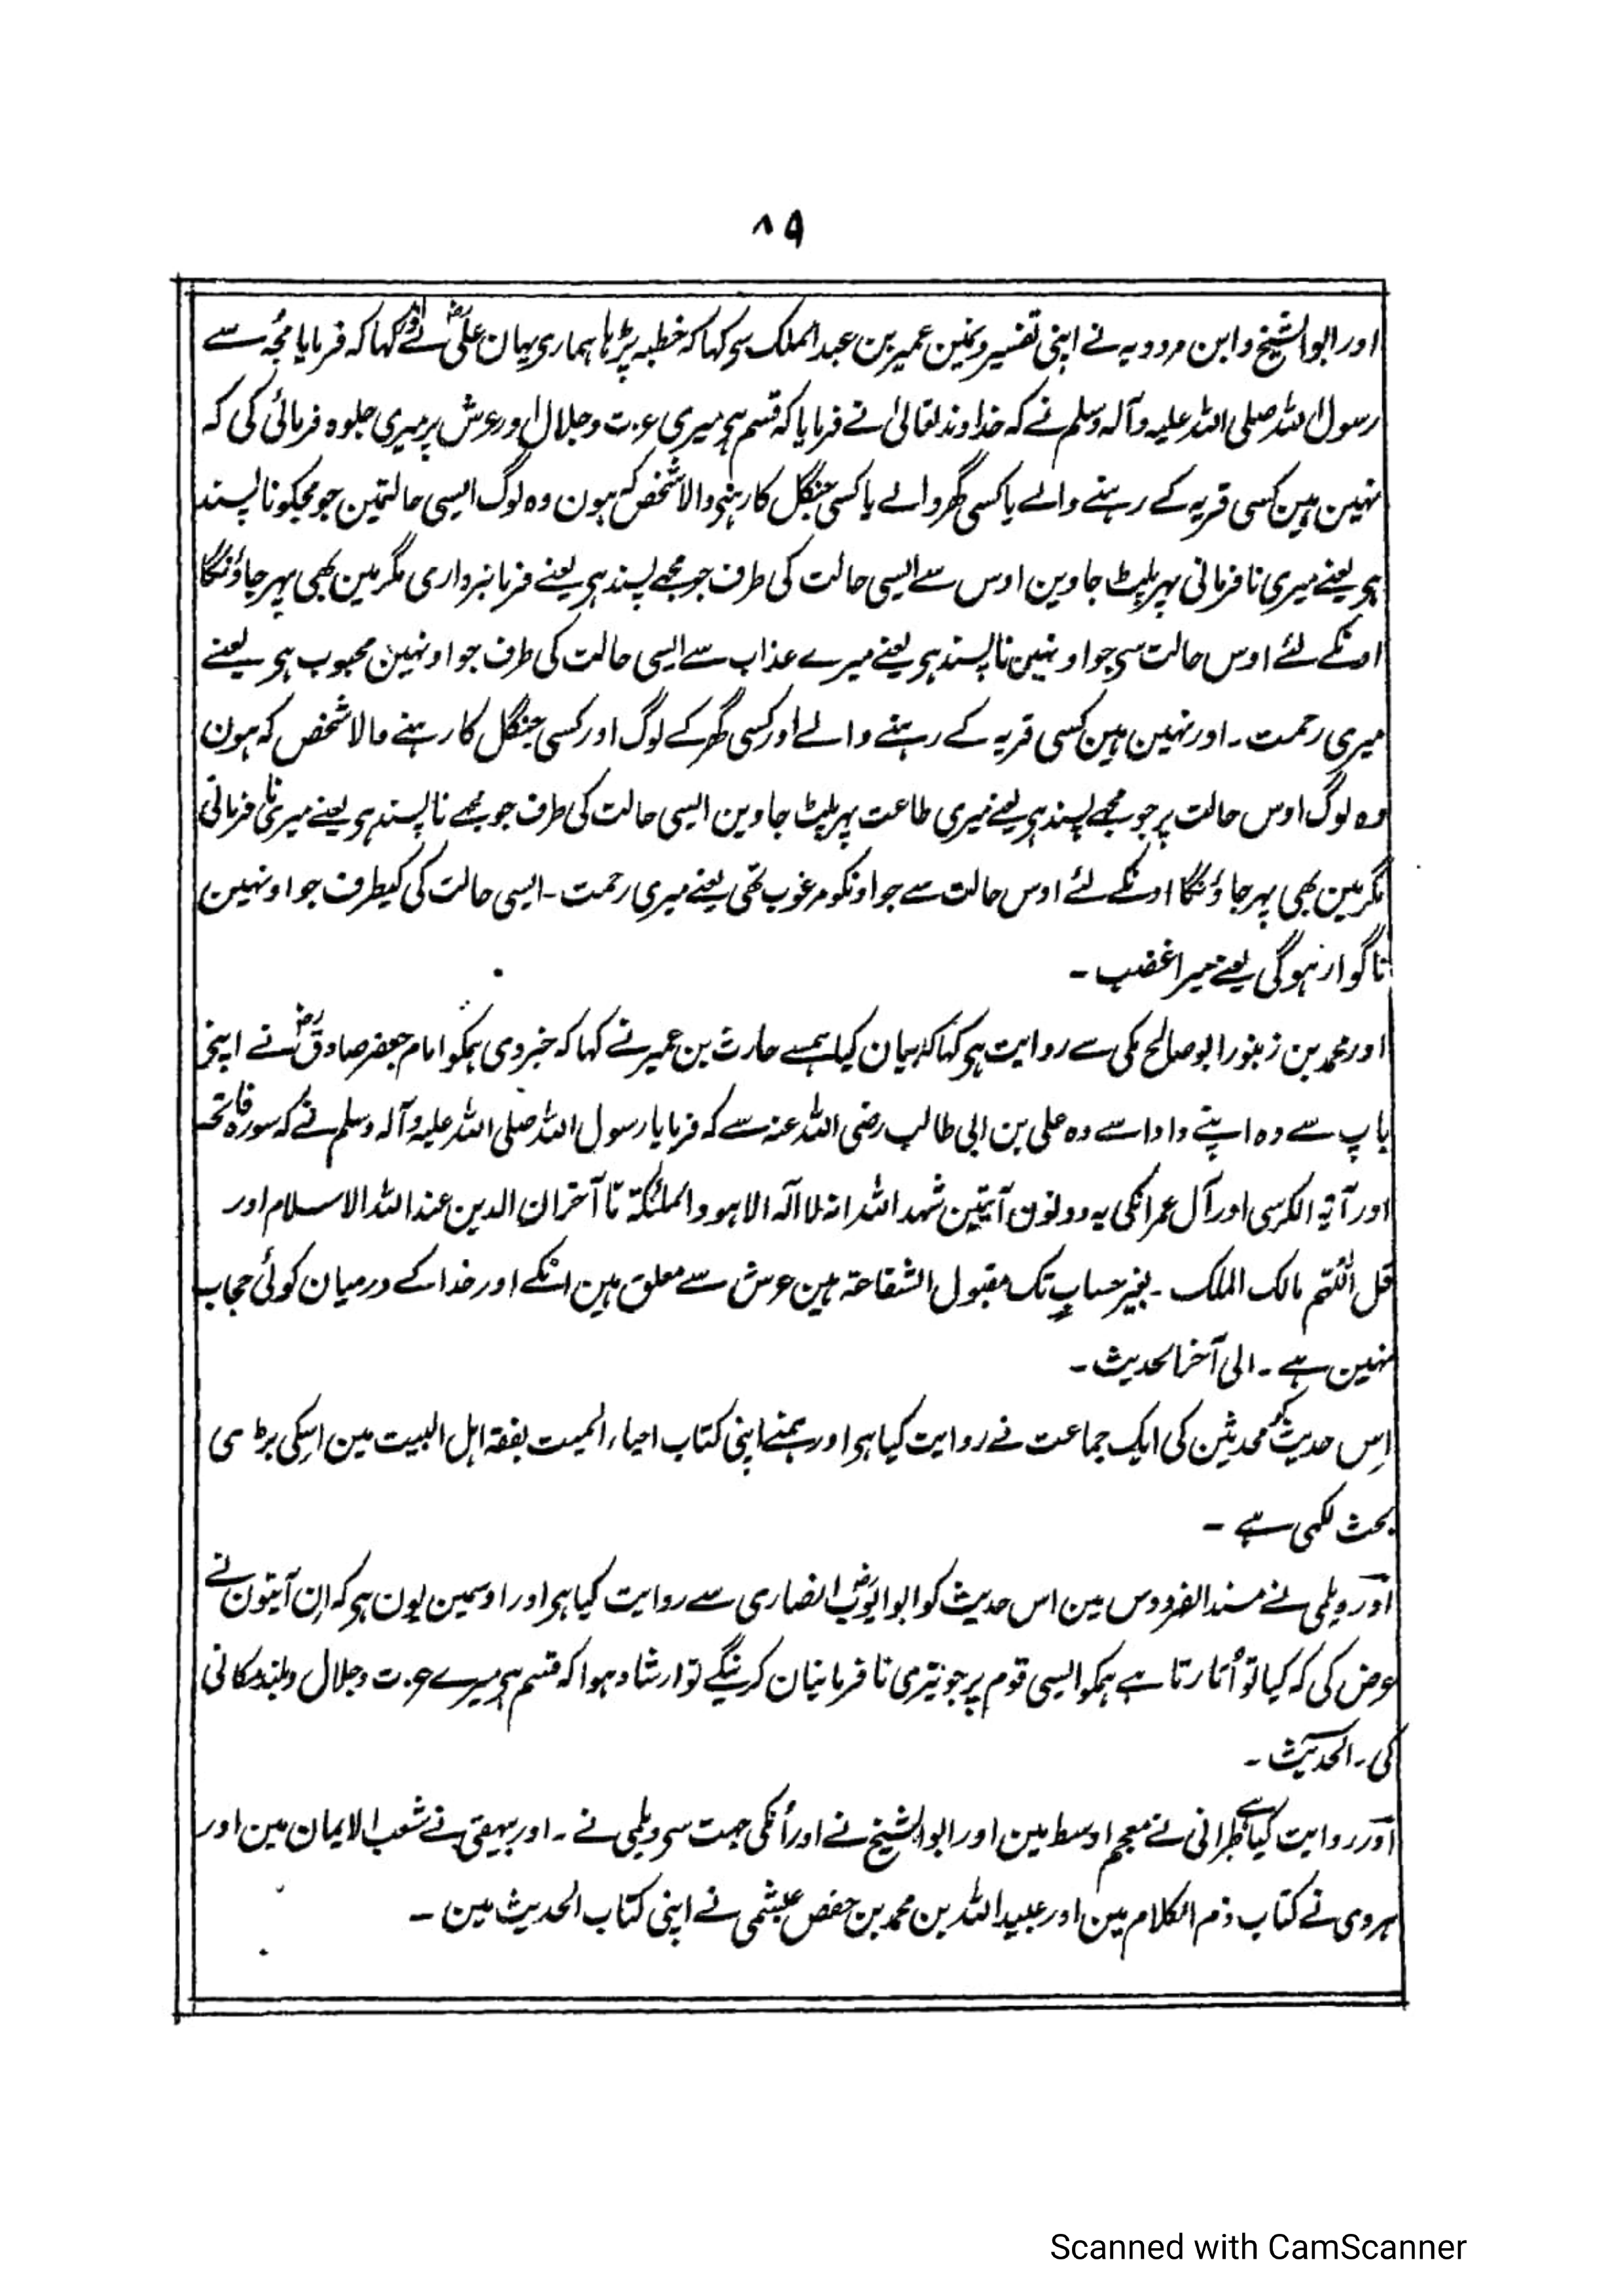 ۸۹
اور ابو الشیخ و ابن مردویہ نے اپنی تفسیرونمین عمیر بن عبد الملک سی کہا کہ خطبہ پڑہا ہماری یہان علیؓ نے اور کہا کہ فرمایا مجہ سے
رسول اللہ صلی اللہ علیہ وآلہ وسلم نے کہ خداوند تعالیٰ نے فرمایا کہ قسم ہی میری عزت و جلال اور عرش پر میری جلوہ فرمائی کی کہ
نہین ہین کسی قریہ کے رہنے والے یا کسی گھر والے یا کسی جنگل کا رہنی والا شخص کہ ہون وہ لوگ ایسی حالتمین جو مجکو ناپسند
ہی یعنے میری نافرمانی پہر پلٹ جاوین اوس سے ایسی حالت کی طرف جو مجھے پسند ہی یعنے فرمانبرداری مگر مین بھی پہر جاؤنگا
اونکے لئے اوس حالت سی جو اونہین ناپسند ہی یعنے میرے عذاب سے ایسی حالت کی طرف جو اونہین محبوب ہی یعنے
میری رحمت ۔ اور نہین ہین کسی قریہ کے رہنے والے اور کسی گھر کے لوگ اور کسی جنگل کا رہنے والا شخص کہ ہون
وہ لوگ اوس حالت پر جو مجھے پسند ہی یعنے میری طاعت پہر پلٹ جاوین ایسی حالت کی طرف جو مجھے ناپسند ہی یعنے میری نافرمانی
مگر مین بھی پہر جاؤنگا اونکے لئے اوس حالت سے جو اونکو مرغوب تھی یعنے میری رحمت ۔ ایسی حالت کی کیطرف جو اونہین
ناگوار نہوگی یعنے میرا غضب ۔
اور محمد بن زنبور ابو صالح مکی سے روایت ہی کہا کہ بیان کیا ہمسے حارث بن عمیر نے کہا کہ خبر دی ہمکو امام جعفر صادقؓ نے اپنی
باپ سے وہ اپنے دادا سے وہ علی بن ابی طالب رضی اللہ عنہ سے کہ فرمایا رسول اللہ صلی اللہ علیہ وآلہ وسلم نے کہ سورہ فاتحہ
اور آیۃ الکرسی اور آل عمرانکی یہ دونون آیتین شہد اللہ انہ لا الہ الا ہو والملئکۃ تا آخر ان الدین عند اللہ الاسلام اور
قل اللّٰہم مالک الملک ۔ بغیر حساب تک مقبول الشفاعۃ ہین عرش سے معلق ہین انکے اور خدا کے درمیان کوئی حجاب
نہین ہے ۔ الی آخر الحدیث ۔
اِس حدیث کو محدثین کی ایک جماعت نے روایت کیا ہی اور ہمنے اپنی کتاب احیاء المیت بفقہ اہل البیت مین اسکی بڑی
بحث لکھی ہے ۔
اور دیلمی نے مسند الفردوس مین اس حدیث کو ابو ایوبؓ انصاری سے روایت کیا ہی اور اوسمین یون ہی کہ اِن آیتون نے
عرض کی کہ کیا تو اُتارتا ہے ہمکو ایسی قوم پر جو تیری نافرمانیان کرینگے تو ارشاد ہوا کہ قسم ہی میرے عزت و جلال و بلند مکانی
کی ۔ الحدیث ۔
اور روایت کیا ہے طبرانی نے معجم اوسط مین اور ابو الشیخ نے اور اُنکی جہت سی دیلمی نے ۔ اور بیہقی نے شعب الایمان مین اور
ہروی نے کتاب ذم الکلام مین اور عبید اللہ بن محمد بن حفص عیشمی نے اپنی کتاب الحدیث مین ۔
Scanned with CamScanner